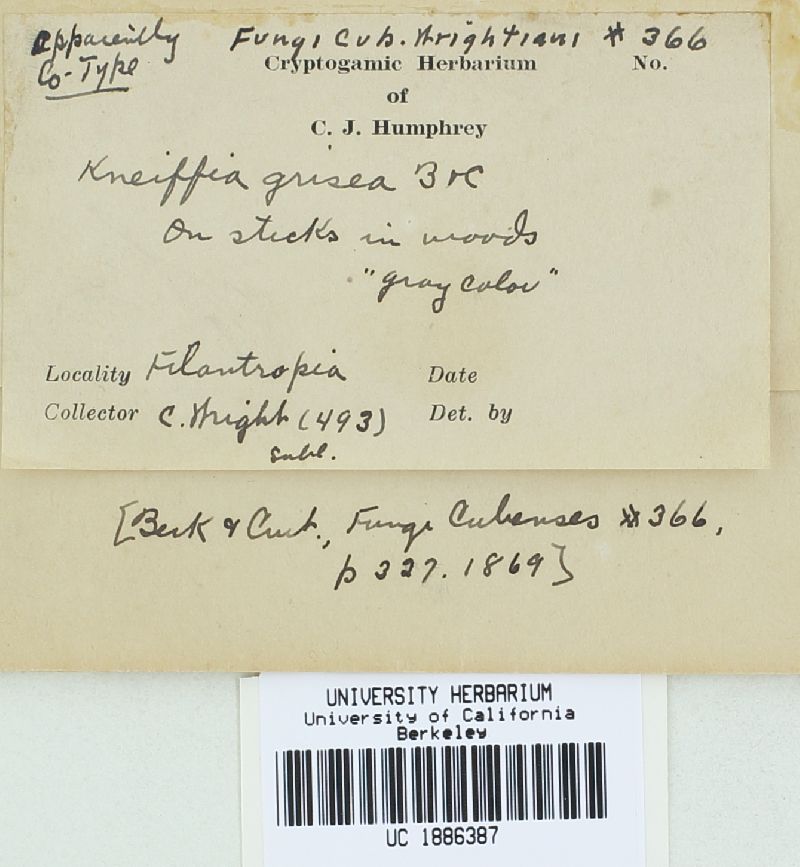 Apparently Fungi Cub. Wrightiani # 366
Co-Type
Cryptogamic Herbarium No.
of
C. J. Humphrey
Kneiffia grisea B &C
On sticks in woods
"gray color"
Locality Filantropia Date
Collector C. Wright (493) Det. by
[Berk & Curt., Fungi Cubenses #366,
p 327. 1869]
UNIVERSITY HERBARIUM
University of California
Berkeley
UC 1886387